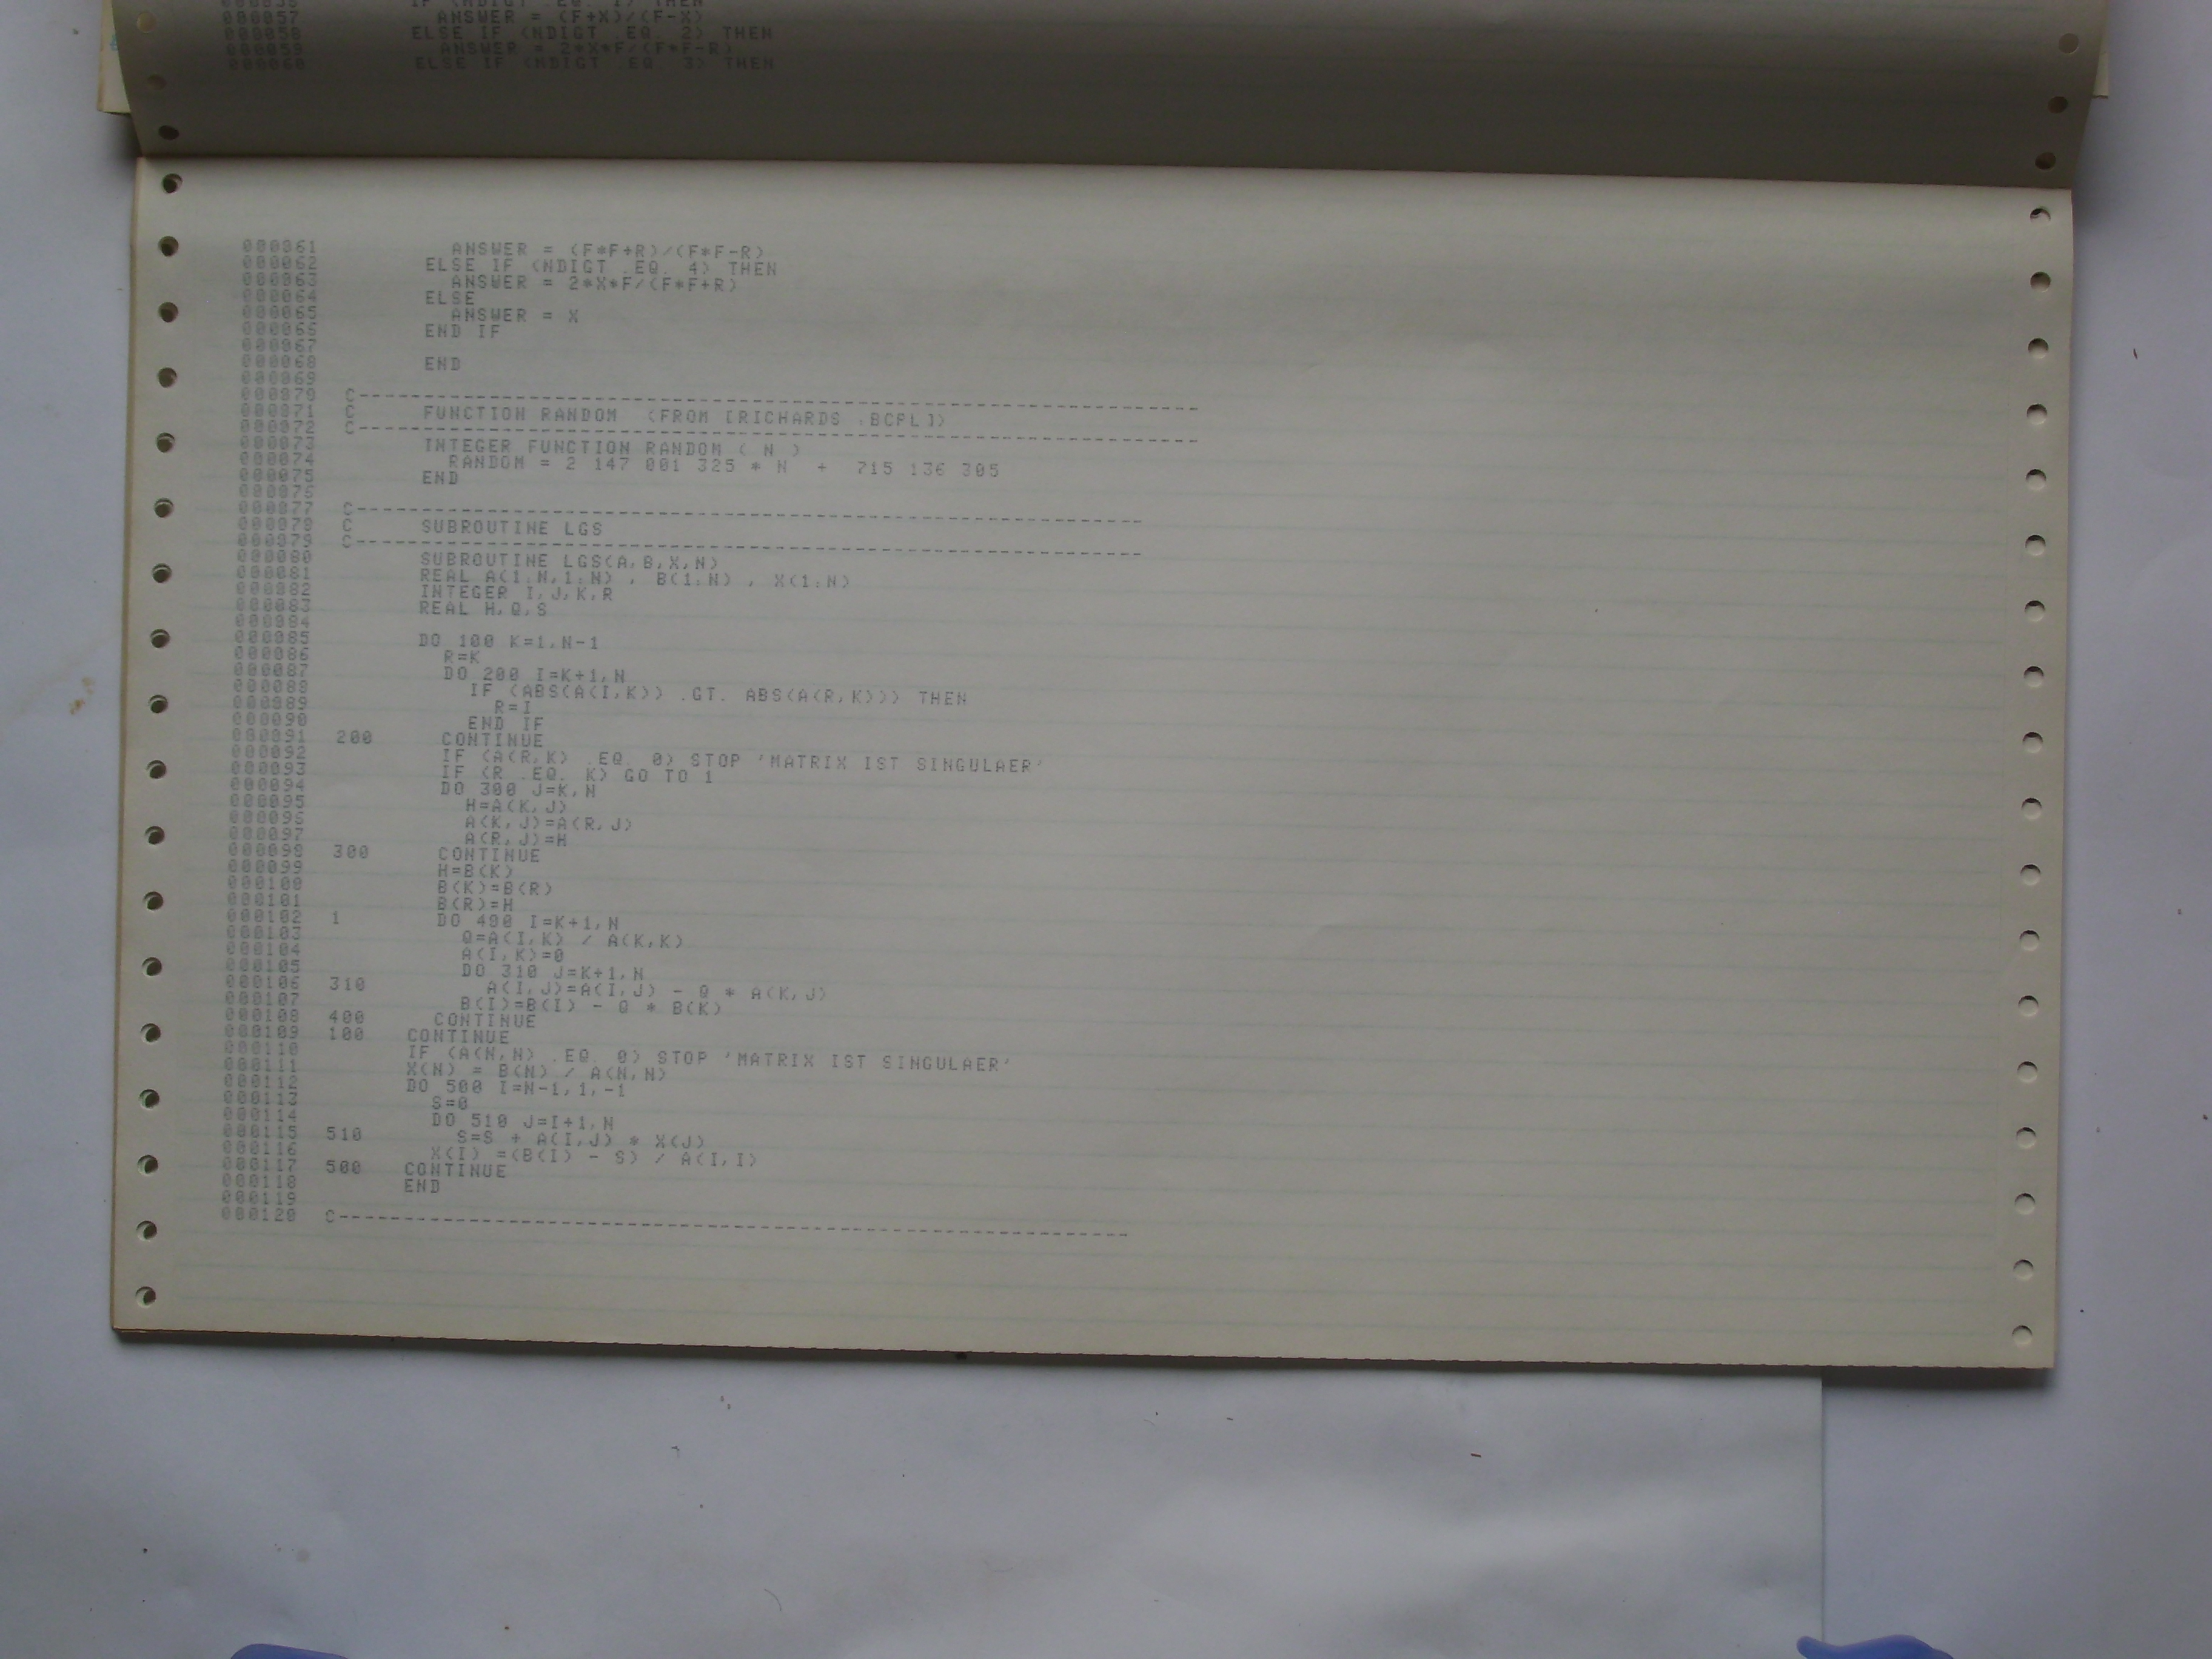 000057 ANSWER = (F+X)/(F-X)
000058 ELSE IF (NDIGT .EQ. 2) THEN
000059 ANSWER = 2*X*F/(F*F-R)
000060 ELSE IF (NDIGT .EQ. 3) THEN
000061 ANSWER = (F*F+R)/(F*F-R)
000062 ELSE IF (NDIGT .EQ. 4) THEN
000063 ANSWER = 2*X*F/(F*F+R)
000064 ELSE
000065 ANSWER = X
000066 END IF
000067
000068 END
000069
000070 C-----------------------------------------------------------------
000071 C FUNCTION RANDOM (FROM [RICHARDS ,BCPL])
000072 C-----------------------------------------------------------------
000073 INTEGER FUNCTION RANDOM ( N )
000074 RANDOM = 2 147 001 325 * N + 715 136 305
000075 END
000076
000077 C-------------------------------------------------------------
000078 C SUBROUTINE LGS
000079 C-------------------------------------------------------------
000080 SUBROUTINE LGS(A,B,X,N)
000081 REAL A(1:N,1:N) , B(1:N) , X(1:N)
000082 INTEGER I,J,K,R
000083 REAL H,Q,S
000084
000085 DO 100 K=1,N-1
000086 R=K
000087 DO 200 I=K+1,N
000088 IF (ABS(A(I,K)) .GT. ABS(A(R,K))) THEN
000089 R=I
000090 END IF
000091 200 CONTINUE
000092 IF (A(R,K) .EQ. 0) STOP 'MATRIX IST SINGULAER'
000093 IF (R .EQ. K) GO TO 1
000094 DO 300 J=K,N
000095 H=A(K,J)
000096 A(K,J)=A(R,J)
000097 A(R,J)=H
000098 300 CONTINUE
000099 H=B(K)
000100 B(K)=B(R)
000101 B(R)=H
000102 1 DO 400 I=K+1,N
000103 Q=A(I,K) / A(K,K)
000104 A(I,K)=0
000105 DO 310 J=K+1,N
000106 310 A(I,J)=A(I,J) - Q * A(K,J)
000107 B(I)=B(I) - Q * B(K)
000108 400 CONTINUE
000109 100 CONTINUE
000110 IF (A(N,N) .EQ. 0) STOP 'MATRIX IST SINGULAER'
000111 X(N) = B(N) / A(N,N)
000112 DO 500 I=N-1,1,-1
000113 S=0
000114 DO 510 J=I+1,N
000115 510 S=S + A(I,J) * X(J)
000116 X(I) =(B(I) - S) / A(I,I)
000117 500 CONTINUE
000118 END
000119
000120 C-------------------------------------------------------------